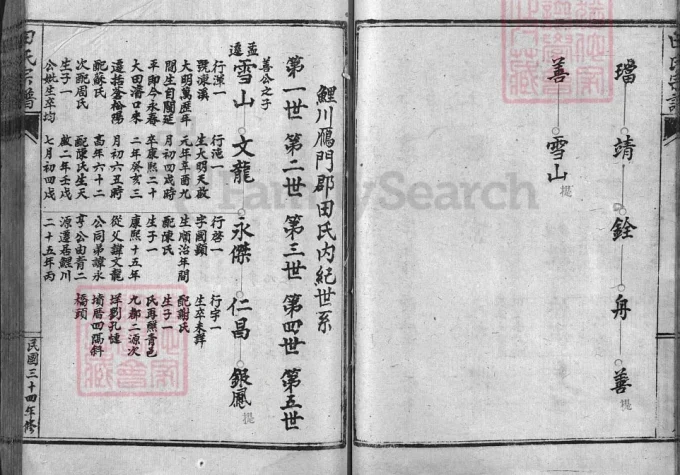 田氏宗譜
璿 靖 銓 舟 善
提
善 雪山
提
鯉川鴈門郡田氏內紀世系
第一世 第二世 第三世 第四世 第五世
善公之子
雪山 文龍 永傑 仁昌 銀鳳
提
孟
遷
行深一
號凍溪
大明萬歷年
間生自閩延
平即今永春
大田潛口來
遷括蒼松陽
配蘇氏
次配周氏
生子一
公妣生卒均
行沲一
生大明天啟
元年辛酉九
月初四戌時
卒康熙二十
二年癸亥三
月初六五時
高年六十二
配陳氏生天
啟二年壬戌
七月初四戌
行啓一
字國顯
生順治年間
配陳氏
生子一
康熙十五年
從父諱文龍
公同弟諱永
亨公由青二
源遷居鯉川
二十五年丙
行宇一
生卒未詳
配謝氏
生子一
氏再醮青邑
九都二源次
垟劉孔
墳厝四隔斜
福頭
田氏宗譜
民國三十四年修
FamilySearch